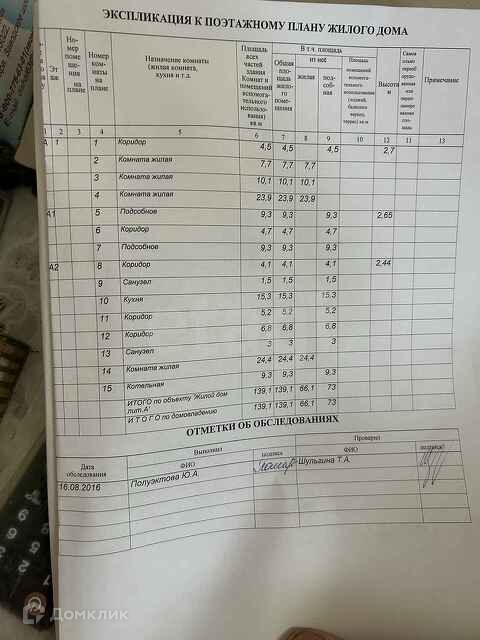 ЭКСПЛИКАЦИЯ К ПОЭТАЖНОМУ ПЛАНУ ЖИЛОГО ДОМА
Этаж Номер помещения на плане Номер комнаты на плане Назначение комнаты (жилая комната, кухня и т.д. Площадь всех частей здания Комнат и помещений вспомогательного использования) кв м В т.ч. площадь Общая площадь жилого помещения из неё жилая подсобная Площадь помещений вспомогательного использования (лоджий, балконов веранд, террас) кв м Высота м Примечание
1 2 3 4 5 6 7 8 9 10 12 11 13
А 1 1 Коридор 4,5 4,5 4,5 2,7
2 Комната жилая 7,7 7,7 7,7
3 Комната жилая 10,1 10,1 10,1
4 Комната жилая 23,9 23,9 23,9
А1 5 Подсобное 9,3 9,3 9,3 2,65
6 Коридор 4,7 4,7 4,7
7 Подсобное 9,3 9,3 9,3
А2 8 Коридор 4,1 4,1 4,1 2,44
9 Санузел 1,5 1,5 1,5
10 Кухня 15,3 15,3 15,3
11 Коридор 5,2 5,2 5,2
12 Коридор 6,8 6,8 6,8
13 Санузел 3 3 3
14 Комната жилая 24,4 24,4 24,4
15 Котельная 9,3 9,3 9,3
ИТОГО по объекту "Жилой дом лит.А" 139,1 139,1 66,1 73
И Т О Г О по домовладению 139,1 139,1 66,1 73
ОТМЕТКИ ОБ ОБСЛЕДОВАНИЯХ
Дата обследования Выполнил Проверил
ФИО подпись ФИО подпись
16.08.2016 Полуэктова Ю.А. Шульгина Т.А.
Домклик